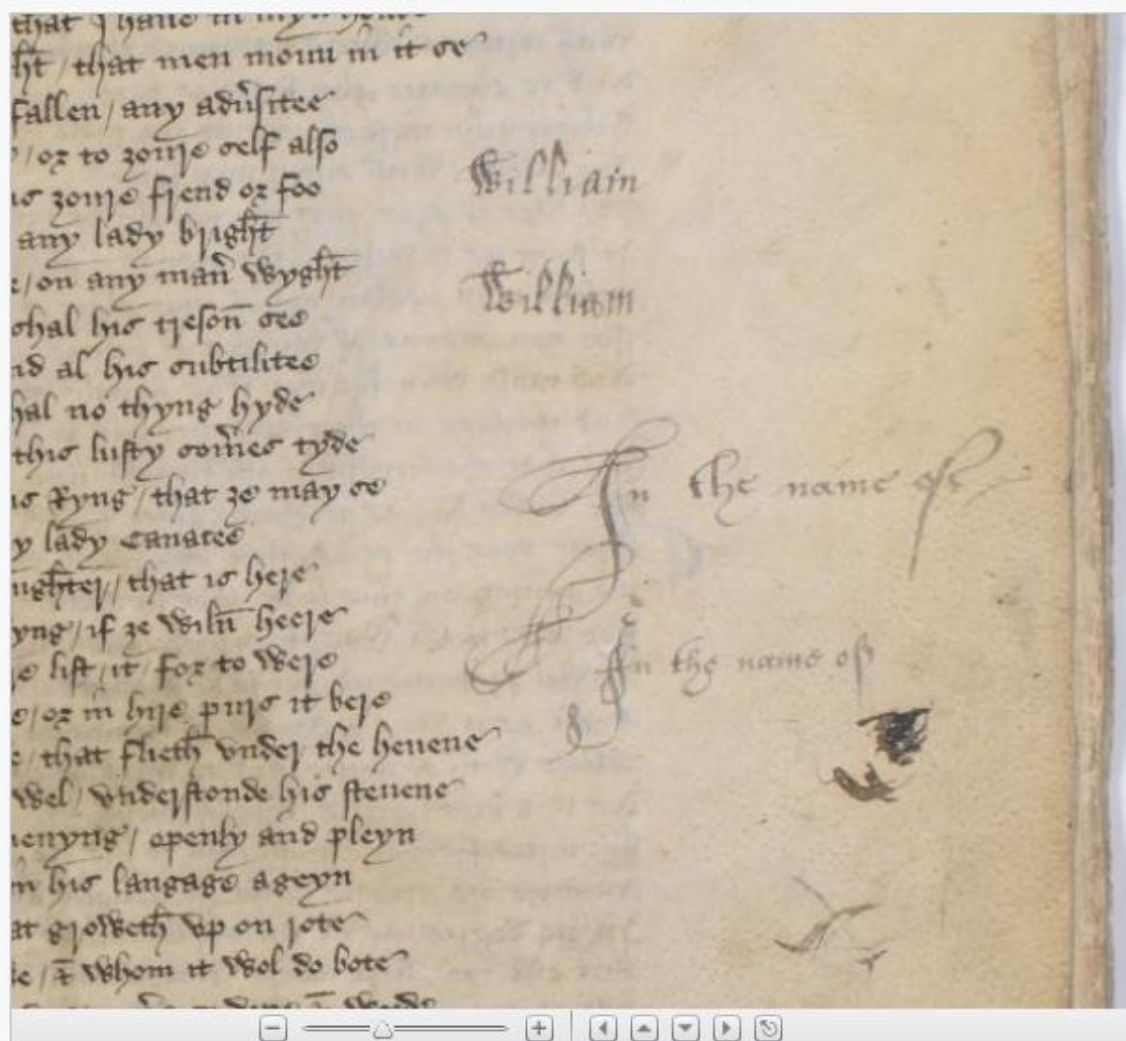 that I haue in myn honde
ht / that men moun in it se
fallen / any adūsitee
/ or to ȝoure self also
is ȝoure frend or foo
any lady bright
e / on any man̄ wyght
shal his treson̄ see
nd al his subtilitee
hal no thyng hyde
this lusty som̄es tyde
is Ryng / that ȝe may se
y lady Canacee
ughter / that is here
yng / if ȝe wiln̄ heere
e list / it / for to were
e / or in hire purs it bere
e / that flieth vnder the heuene
wel / vnderstonde his steuene
menyng / openly and pleyn
n his langage ageyn
at groweth vp on rote
le / & whom it wol do bote
William
William
In the name of
In the name of